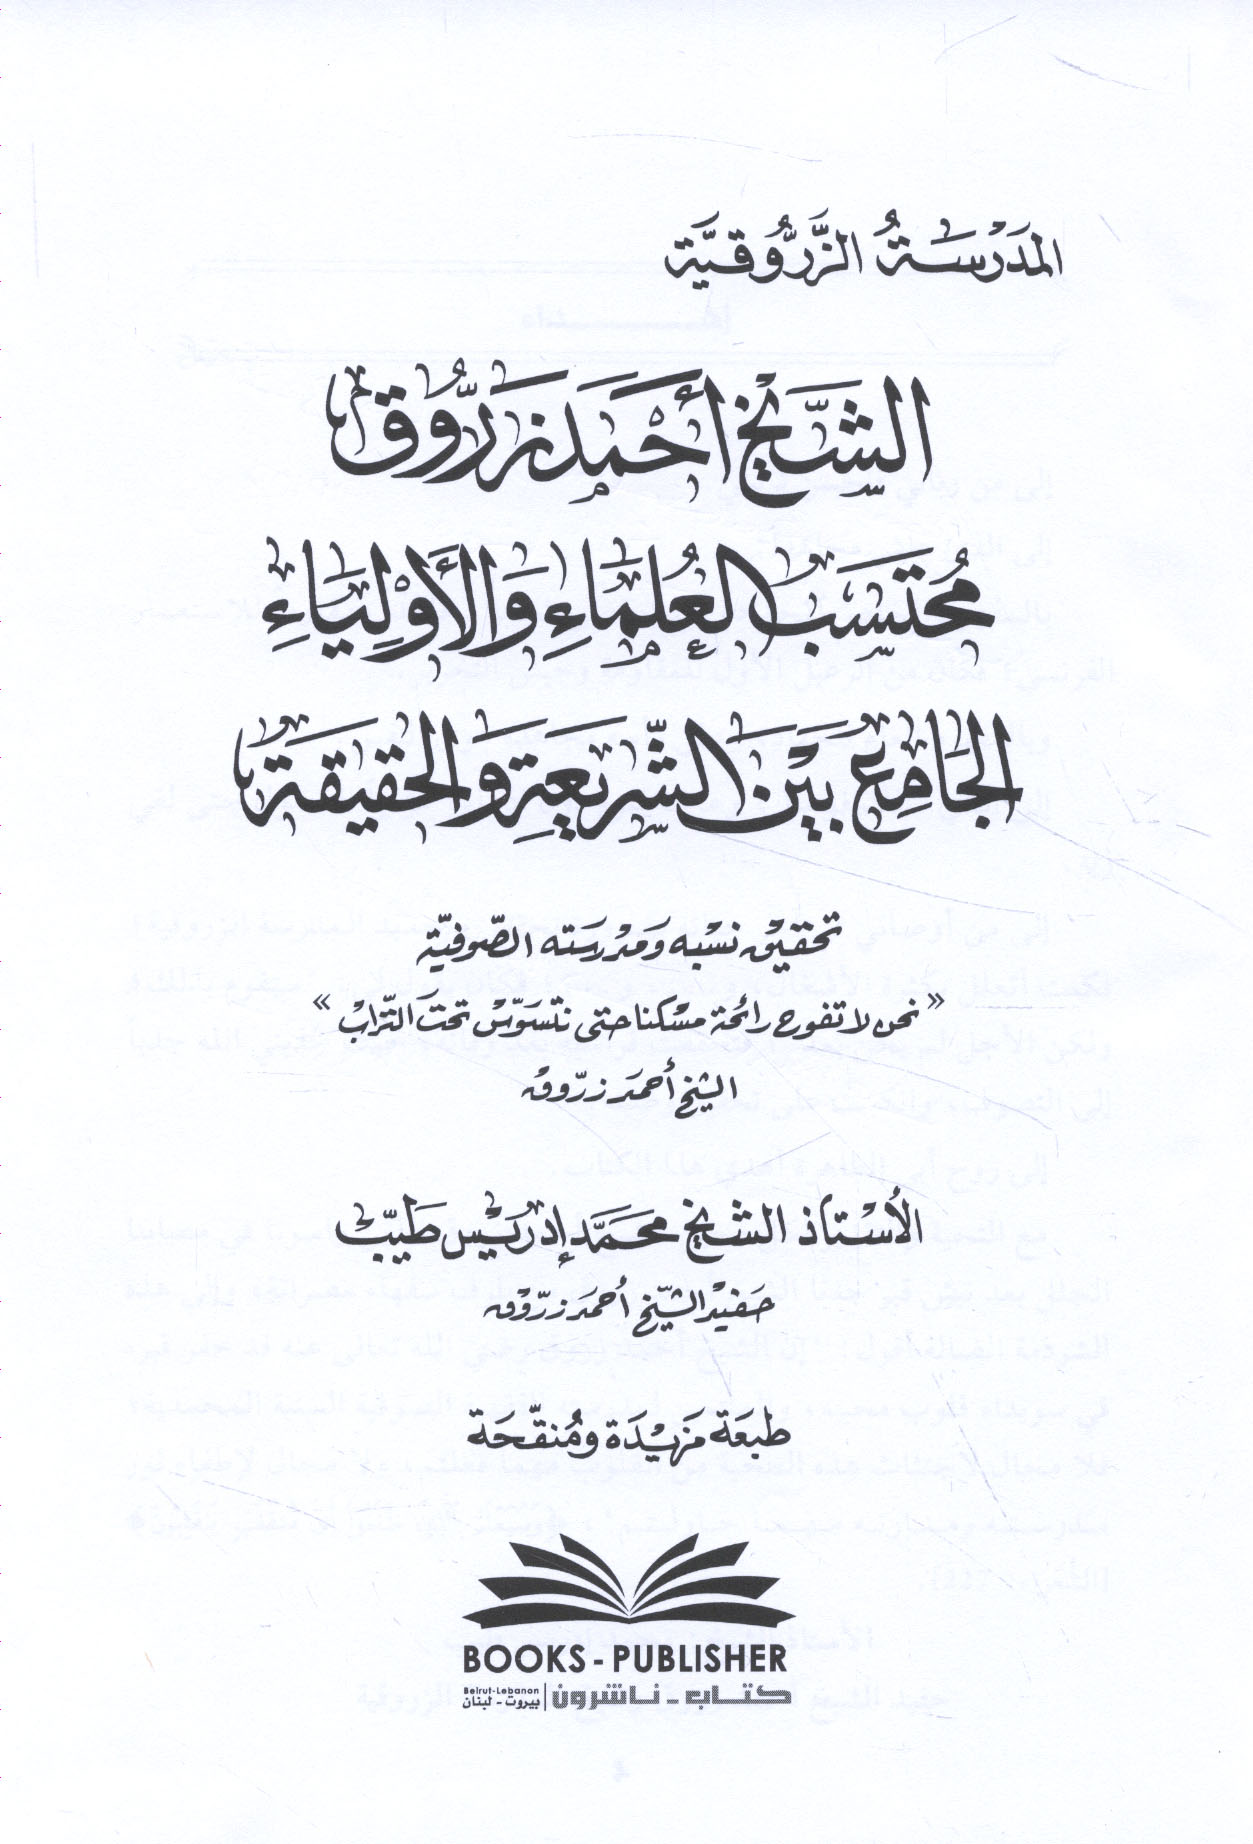 المَدْرَسَةُ الزَّرُّوقيَّة
الشَّيْخ أَحْمَد زَرُّوق
مُحْتَسِبُ العُلَمَاءِ وَالأَوْلِيَاءِ
الجَامِعُ بَيْنَ الشَّرِيعَةِ وَالحَقِيقَةِ
تحقيق نسبه ومدرسته الصّوفيّة
« نحن لا تفوح رائحة مسكنا حتى نتسوّس تحت التّراب »
الشيخ أحمد زرّوق
الأُسْتَاذ الشيخ محمَّد إدريس طيّب
حفيد الشّيخ أحمد زرّوق
طبعَة مَزيْدَة ومُنقّحَة
BOOKS - PUBLISHER
كتاب - ناشرون | بيروت - لبنان Beirut-Lebanon